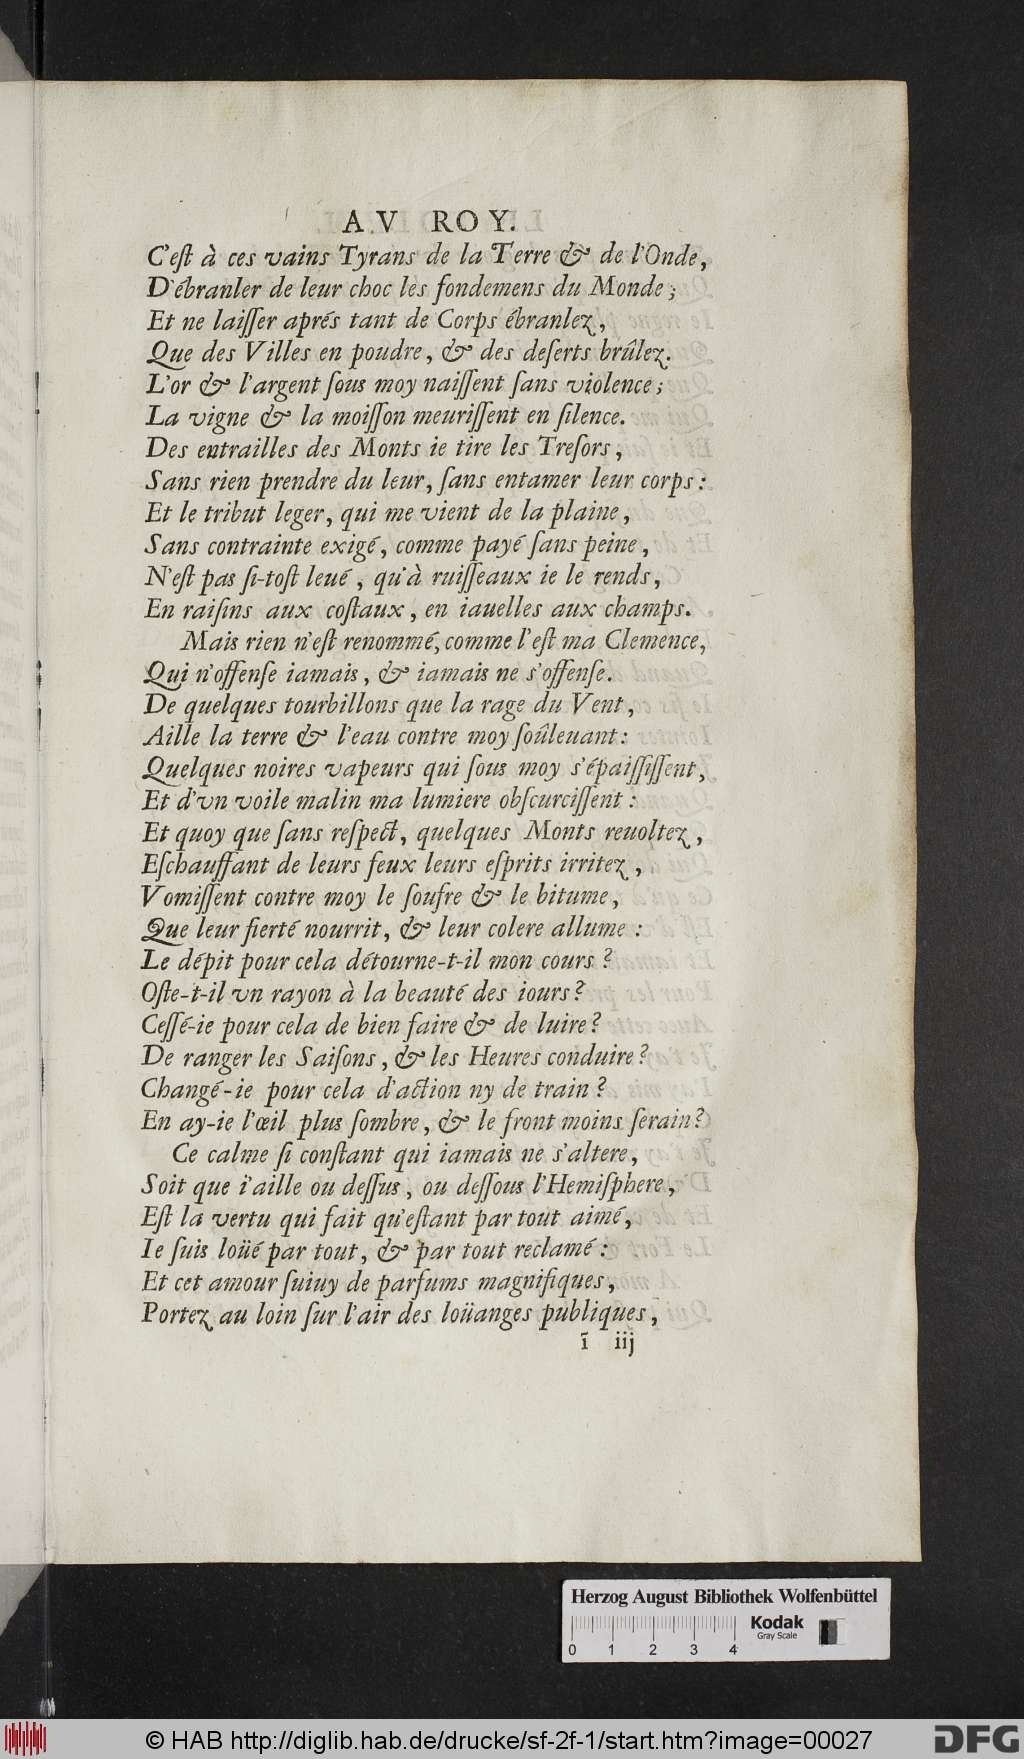 AV ROY.
C'eſt à ces vains Tyrans de la Terre & de l'Onde,
D'ébranler de leur choc les fondemens du Monde;
Et ne laiſſer aprés tant de Corps ébranlez,
Que des Villes en poudre, & des deſerts brûlez.
L'or & l'argent ſous moy naiſſent ſans violence;
La vigne & la moiſſon meuriſſent en ſilence.
Des entrailles des Monts ie tire les Treſors,
Sans rien prendre du leur, ſans entamer leur corps:
Et le tribut leger, qui me vient de la plaine,
Sans contrainte exigé, comme payé ſans peine,
N'eſt pas ſi-toſt leué, qu'à ruiſſeaux ie le rends,
En raiſins aux coſtaux, en iauelles aux champs.
Mais rien n'eſt renommé, comme l'eſt ma Clemence,
Qui n'offenſe iamais, & iamais ne s'offenſe.
De quelques tourbillons que la rage du Vent,
Aille la terre & l'eau contre moy ſoûleuant:
Quelques noires vapeurs qui ſous moy s'épaiſſiſſent,
Et d'vn voile malin ma lumiere obſcurciſſent:
Et quoy que ſans reſpect, quelques Monts reuoltez,
Eſchauffant de leurs feux leurs eſprits irritez,
Vomiſſent contre moy le ſoufre & le bitume,
Que leur fierté nourrit, & leur colere allume:
Le dépit pour cela détourne-t-il mon cours?
Oſte-t-il vn rayon à la beauté des iours?
Ceſſé-ie pour cela de bien faire & de luire?
De ranger les Saiſons, & les Heures conduire?
Changé-ie pour cela d'action ny de train?
En ay-ie l'œil plus ſombre, & le front moins ſerain?
Ce calme ſi conſtant qui iamais ne s'altere,
Soit que i'aille ou deſſus, ou deſſous l'Hemiſphere,
Eſt la vertu qui fait qu'eſtant par tout aimé,
Ie ſuis loüé par tout, & par tout reclamé:
Et cet amour ſuiuy de parfums magnifiques,
Portez au loin ſur l'air des loüanges publiques,
ĩ iij
Herzog August Bibliothek Wolfenbüttel
Kodak
Gray Scale
0 1 2 3 4
© HAB http://diglib.hab.de/drucke/sf-2f-1/start.htm?image=00027
DFG